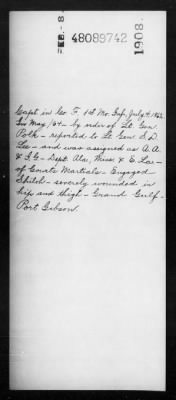 FEB. - 8.
48089742
1908.
Capt in Co F, 1st Mo. Inf. July 4, 1862.
In May /64 - by order of Lt. Gen.
Polk - reported to Lt Gen S. D.
Lee - and was assigned as A. A.
& I. G - Dept. Ala, Miss & E. La -
of Courts Martials - Engaged -
Shiloh - severely wounded in
hip and thigh - Grand Gulf -
Port Gibson.